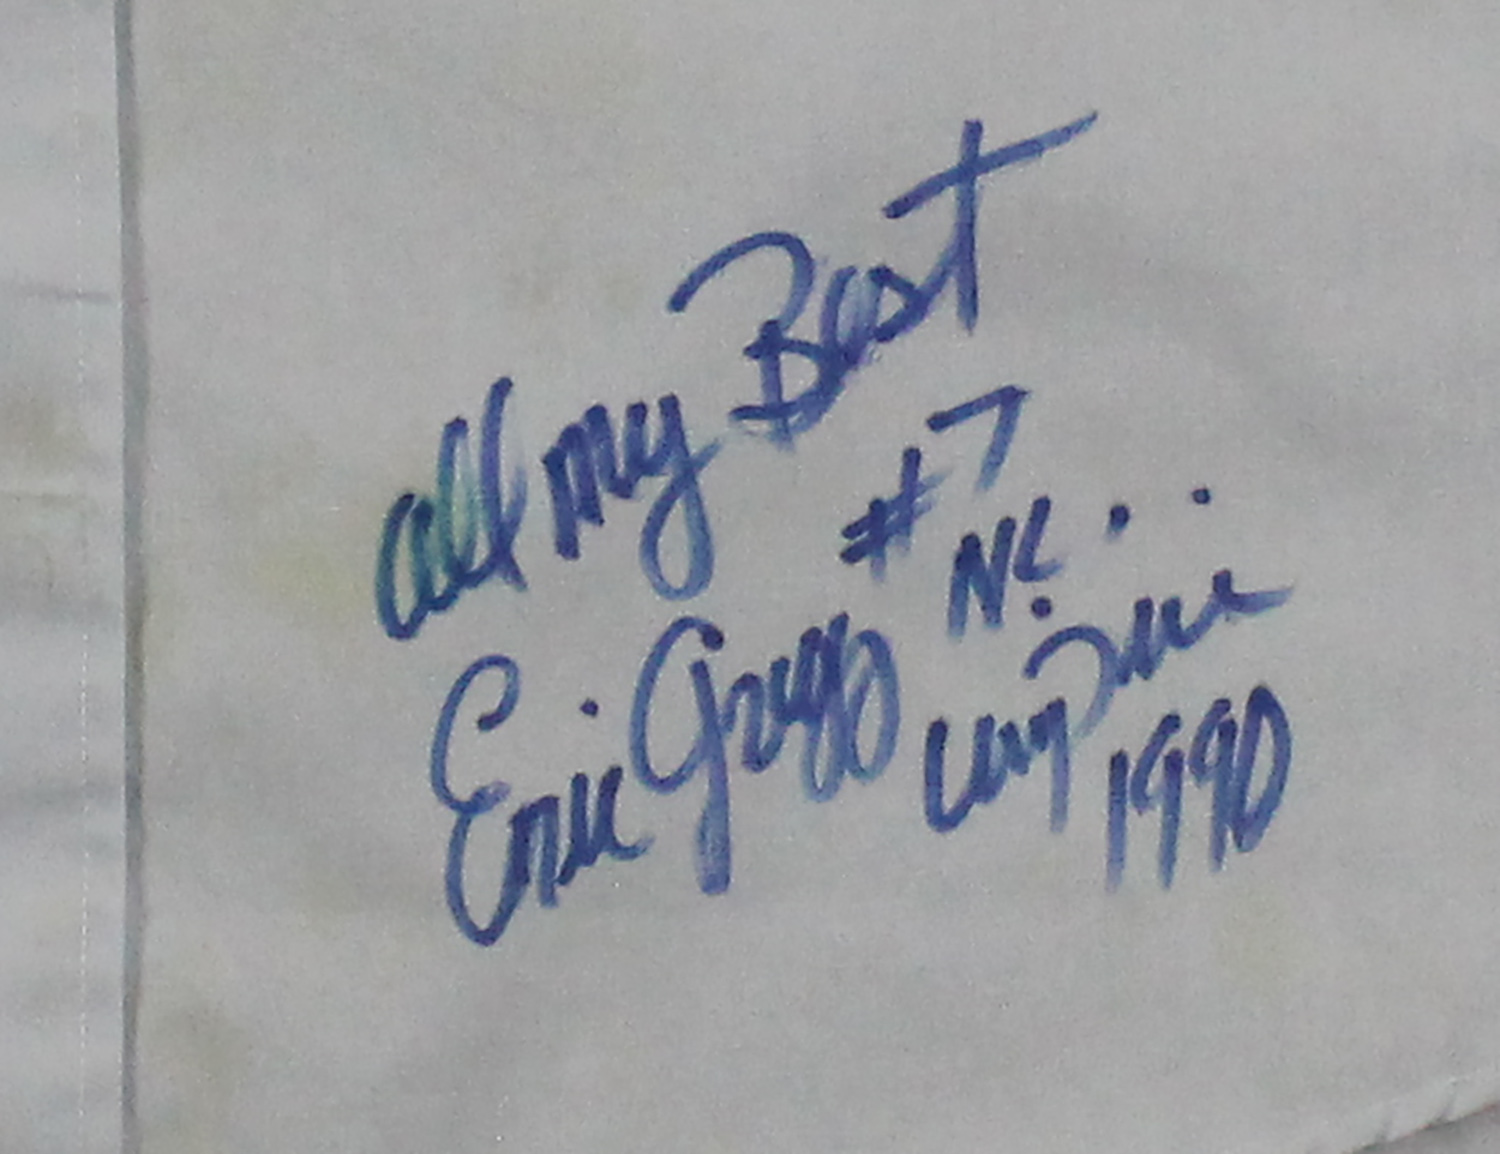 All my Best
#7
Eric Gregg
N.L..
umpire
1990